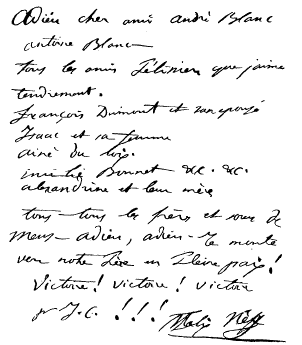 Adieu cher ami andré Blanc
antoine Blanc
tous les amis Pélissier que j'aime
tendrement.
françois Dumont et son épouse
Isaac et sa femme
aimé du bois
Bonnet &c. &c.
alexandrine et leur mère
tous - tous les frères et sœurs de
Mens - adieu, adieu - Je monte
vers notre Père en pleine paix!
Victoire! victoire! victoire
pr J.C. !!!
Félix Neff